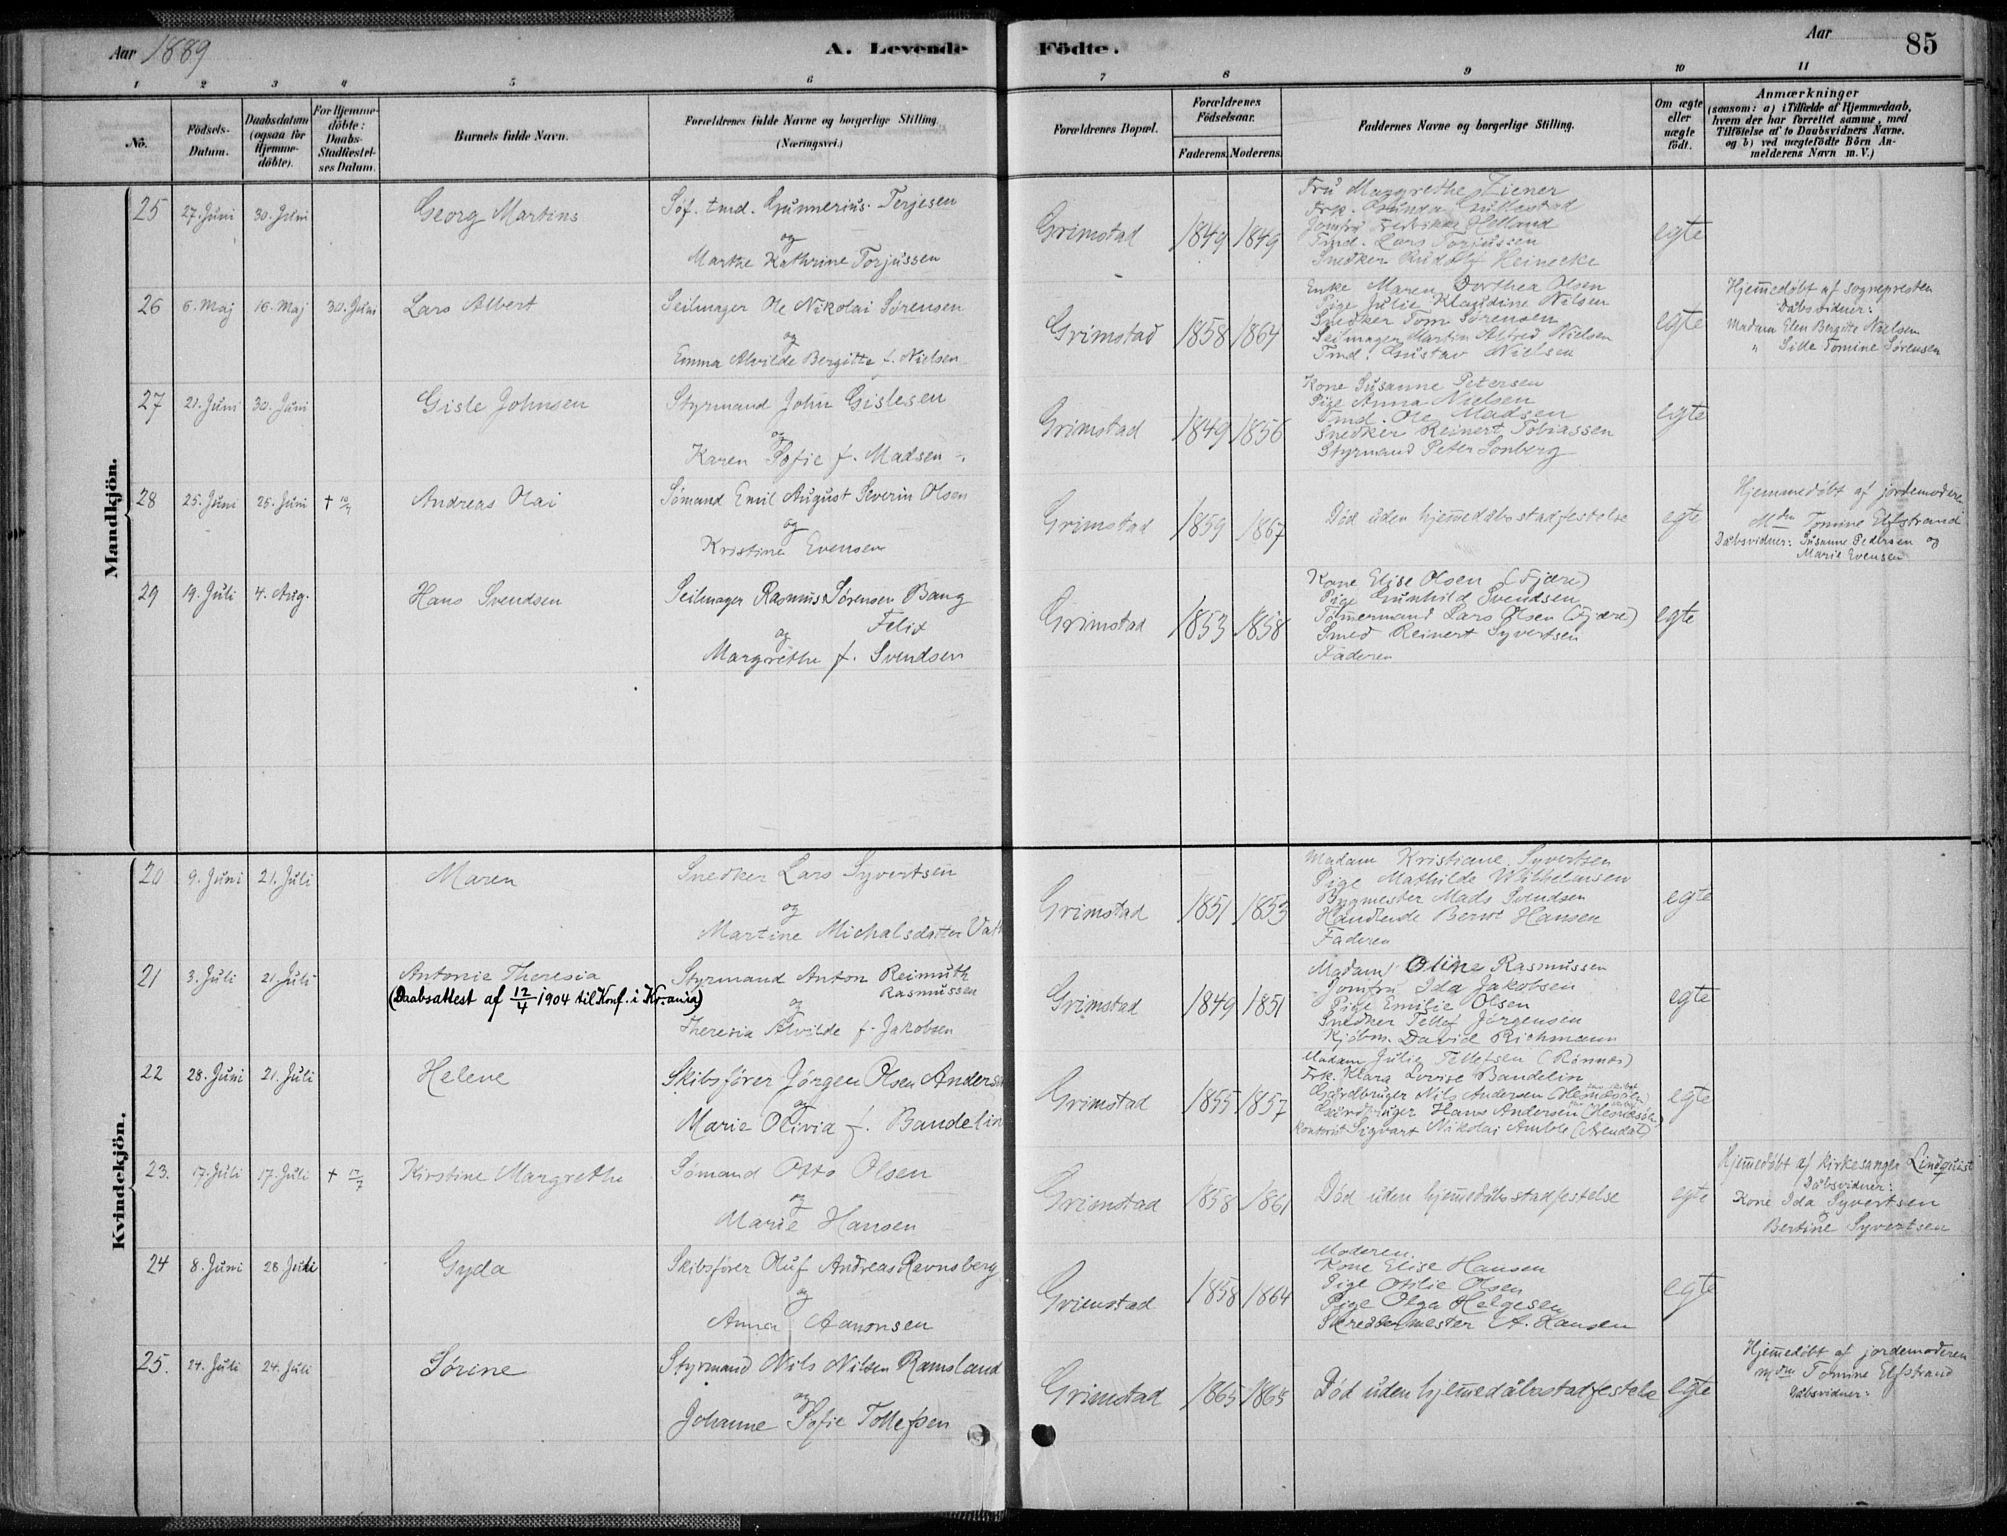 Aar 1889
A. Levende Födte.
Aar
85
1 2 3 4 5 6 7 8 9 10 11
No.
Födsels-Datum.
Daabsdatum (ogsaa for Hjemmedöbte).
For Hjemmedöbte: Daabs-Stadfæstelses Datum.
Barnets fulde Navn.
Forældrenes fulde Navne og borgerlige Stilling. (Næringsvei.)
Forældrenes Bopæl.
Forældrenes Födselsaar.
Faderens. Moderens.
Faddernes Navne og borgerlige Stilling.
Om ægte eller uægte födt.
Anmærkninger
(saasom: a) i Tilfælde af Hjemmedaab, hvem der har forrettet samme, med Tilföielse af to Daabsvidners Navne. og b) ved uægtefödte Börn Anmelderens Navn m. V.)
Mandkjön.
25 27. Juni 30. Juni Georg Martins
Söf. tmd. Gunnerius Terjesen
og
Marthe Kathrine Torjussen
Grimstad 1849 1849
Fru Margrethe Ziener
Frk.
Jomfru Helland
Tmd. Lars Torjussen
Snedker Rudolf Heinecke
egte
26 6. Maj 16. Maj 30. Juni Lars Albert
Seilmager Ole Nikolai Sørensen
og
Emma Alvilde Bergitte f. Nielsen
Grimstad 1858 1864
Enke Maren Dorthea Olsen
Pige Julie Klaudine Nilsen
Snedker Tom Sørensen
Seilmager Martin Alfred Nielsen
Tmd. Gustav Nielsen
egte
Hjemedøbt af sognepresten
Dåbsvidner:
Madam Elen Bergitte Nielsen
" Sille Tomine Sørensen
27 21. Juni 30. Juni Gisle Johnsen
Styrmand John Gislesen
og
Karen Sofie f. Madsen
Grimstad 1849 1856
Kone Susanne Petersen
Pige Anna Nielsen
Tmd. Ole Madsen
Snedker Reinert Tobiassen
Styrmand Peter Sonberg
egte
28 25. Juni 25. Juni Andreas Olai
Sømand Emil August Severin Olsen
og
Kristine Evensen
Grimstad 1859 1867
Død uden hjemedåbsstadfestelse
egte
Hjemmedøbt af jordemodere
Mdm Tomine Elfstrand
Dåbsvidner: Susanne Pedersen og
Marie Evensen
29 19. Juli 4. Aug. Hans Svendsen
Seilmager Rasmus Sørensen Bang
Felix
og
Margrethe f. Svendsen
Grimstad 1853 1858
Kone Elise Olsen (Fjære)
Pige Gunhild Svendsen
Tømmermand Lars Olsen (Fjære)
Smed Reinert Syvertsen
Faderen
egte
Kvindekjön.
20 9. Juni 21. Juli Maren
Snedker Lars Syvertsen
og
Martine Michalsdatter
Grimstad 1851 1853
Madam Kristiane Syvertsen
Pige Mathilde Wilhelmsen
Bygmester Mads Svendsen
Handlende Bernt Hansen
Faderen
egte
21 3. Juli 21. Juli Antonie Theresia
(Daabsattest af 12/4 1904 til Konf. i Krania)
Styrmand Anton Reimuth
Rasmussen
og
Theresia Alvilde f. Jakobsen
Grimstad 1849 1851
Madam Oline Rasmussen
Jomfru Ida Jakobsen
Pige Emilie Olsen
Snedker Tellef Jørgensen
Kjøbm. David Richmann
egte
22 28. Juni 21. Juli Helene
Skibsfører Jørgen Olsen Andersen
og
Marie Olivia f. Bandelin
Grimstad 1855 1857
Madam Julie Tellefsen (Rønnes)
Frk. Klara Lovise Bandelin
Gårdbruger Nils Andersen
Gårdbruger Hans Andersen
Kontorist Sigvart Nikolai Amble (Arendal)
egte
23. 17. Juli 17. Juli + 17/7 Kirstine Margrethe
Sømand Otto Olsen
og
Marie Hansen
Grimstad 1858 1861
Død uden hjemedåbsstadfestelse
egte
Hjemedøbt af kirkesanger Lindquist
Dåbsvidner:
Kone Ida Syvertsen
Bertine Syvertsen
24 8. Juni 28. Juli Gyda
Skibsfører Oluf Andreas Ravnsberg
og
Anna Aanonsen
Grimstad 1858 1864
Moderen.
Kone Elise Hansen
Pige Otilie Olsen
Pige Olga Helgesen
Skreddermester A. Hansen
egte
25. 24. Juli 24. Juli Sørine
Styrmand Nils Nilsen Ramsland
og
Johanne Sofie Tollefsen
Grimstad 1865 1865
Død uden hjemedåbsstadfestelse
egte
Hjemedøbt af jordemoderen
Mdm Tomine Elfstrand
Dåbsvidner: